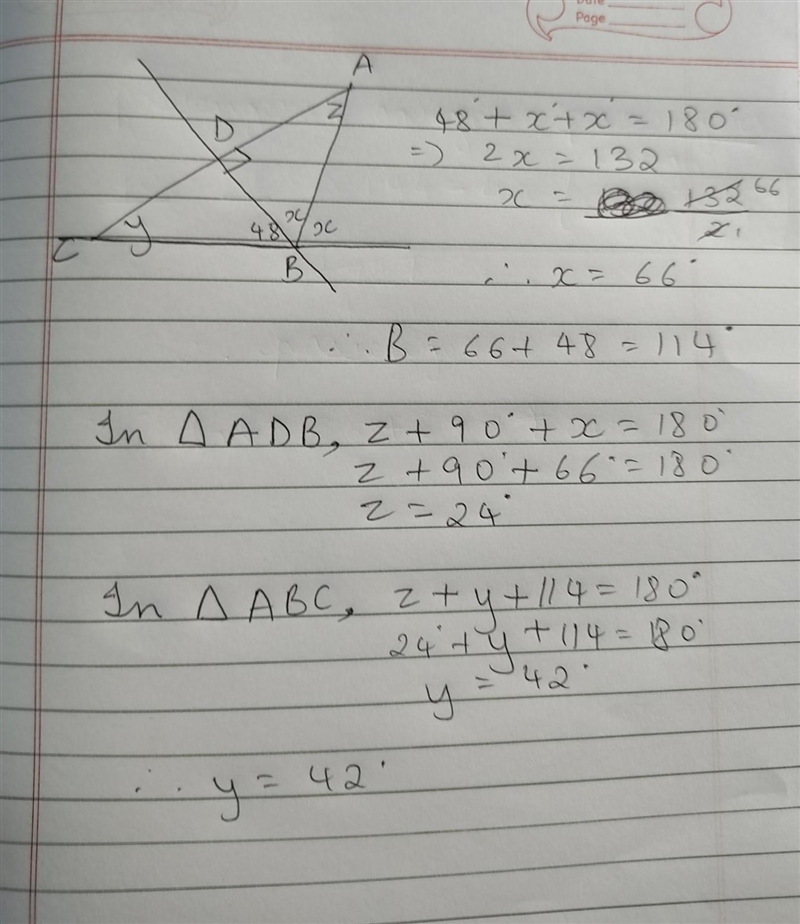 Date
Page
A
D
z
C
y
48
x
x
B
48° + x° + x° = 180°
=) 2x = 132
x = 132 66
2 1
∴ x = 66°
∴ B = 66 + 48 = 114°
In △ ADB, z + 90° + x = 180°
z + 90° + 66° = 180°
z = 24°
In △ ABC, z + y + 114 = 180°
24° + y + 114 = 180°
y = 42°
∴ y = 42°